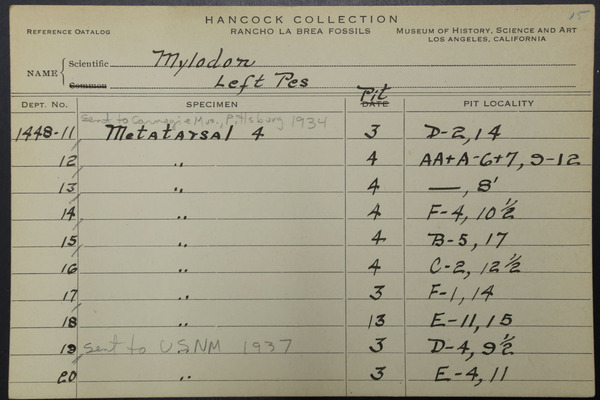 15
HANCOCK COLLECTION
REFERENCE CATALOG RANCHO LA BREA FOSSILS MUSEUM OF HISTORY, SCIENCE AND ART
LOS ANGELES, CALIFORNIA
NAME { Scientific Mylodon
Common Left Pes
Pit
DEPT. NO. SPECIMEN DATE PIT LOCALITY
sent to Carnegie Mus., Pittsburg 1934
1448-11 Metatarsal 4 3 D-2, 14
12 " 4 AA+A-6+7, 9-12
13 " 4 —, 8'
14 " 4 F-4, 10 1/2
15 " 4 B-5, 17
16 " 4 C-2, 12 1/2
17 " 3 F-1, 14
18 " 13 E-11, 15
19 sent to USNM 1937 " 3 D-4, 9 1/2
20 " 3 E-4, 11